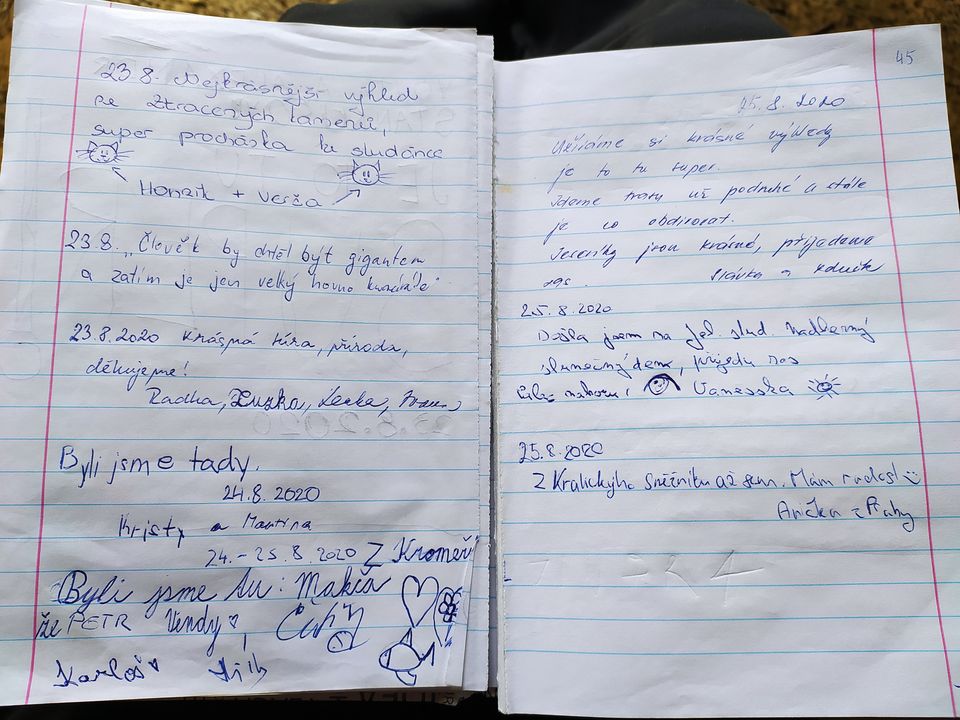 23 8. Nejkrásnější výhled
ze Ztracených kamenů,
super procházka ke studánce
Honzík + Verča
23 8. „Člověk by chtěl být gigantem
a zatím je jen velký hovno
23.8.2020 Krásná túra, příroda,
děkujeme!
Radka, Zuzka, Lenka,
Byli jsme tady.
24.8.2020
Kristy a Martina
24.-25.8.2020 Z Kroměří
Byli jsme tu: Makča
že PETR Vendy,
Karloš
45
25.8.2020
Užíváme si krásné výhledy
je to tu super.
Jdeme trasu už podruhé a stále
je co obdivovat.
Jeseníky jsou krásné, přijedeme
zas. Slávka a Zdeněk
25.8.2020
Došla jsem na Jel. stud. Nádherný
slunečný den, přijedu zas
Vanesska
25.8.2020
Z Kralickýho Sněžníku až sem. Mám radost
Anička z Prahy